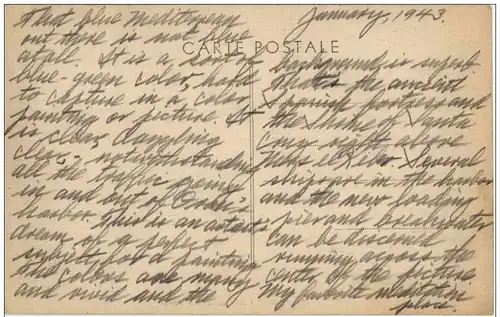 That blue Mediterean
out there is not blue
at all. It is a sort of
blue-green color, hard
to capture in a color
painting or picture. It
is clear, dazzling
clear - notwithstanding
all the traffic going
in and out of Oran
harbor. This is an artist's
dream of a perfect
subject for a painting
the colors are many
and vivid and the
January, 1943.
CARTE POSTALE
background is superb
that's the ancient
Spanish fortress and
the Shrine of Santa
Cruz right above
Mers el Kebir. Several
ships are in the harbor
and the new loading
pier and breakwater
can be discerned
running across the
center of the picture.
My favorite meditation
place.